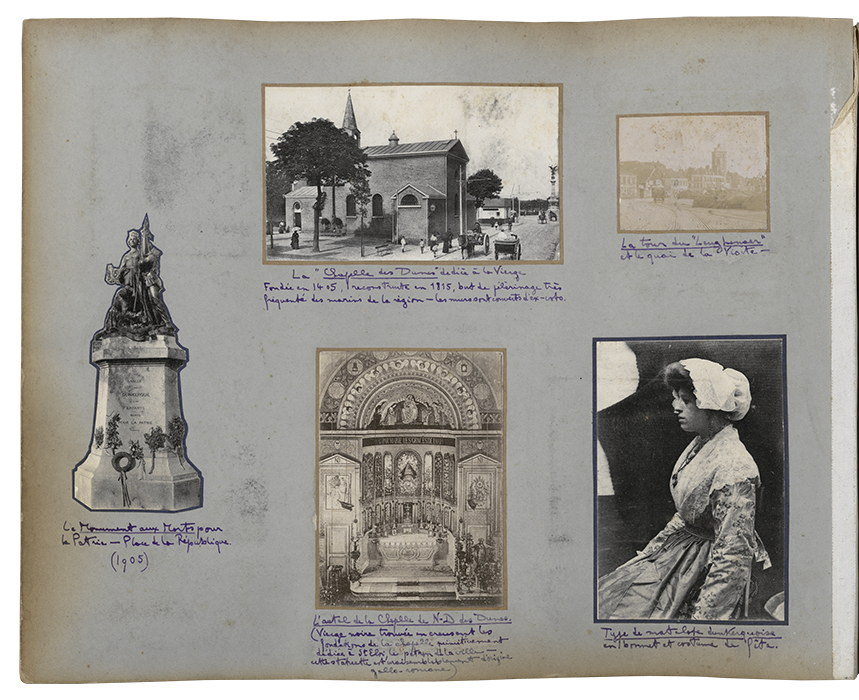 La "Chapelle des Dunes" dediée à la Vierge
Fondée en 1405, reconstruite en 1815, but de pélerinage très
fréquenté des marins de la région — les murs sont couverts d'ex-voto.
La tour du "Leughenaer"
et le quai de la
Le Monument aux Morts pour
la Patrie — Place de la République
(1905)
DUNKERQUE
ENFANTS
MORTS
POUR LA PATRIE
L'autel de la Chapelle de N-D des Dunes.
(Vierge noire trouvée en creusant les
fondations de la chapelle primitivement
dédiée à St Eloi, le patron de la ville —
cette statuette est vraisemblablement d'origine
gallo-romaine)
Type de matelote dunkerquoise
en bonnet et costume de fête.